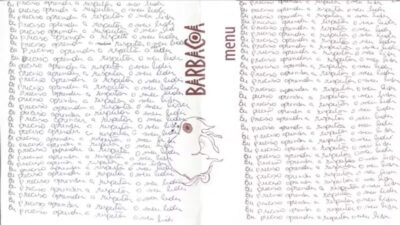 Eu preciso aprender a respeitar o meu líder
Eu preciso aprender a respeitar o meu líder
Eu preciso aprender a respeitar o meu líder
Eu preciso aprender a respeitar o meu líder
Eu preciso aprender a respeitar o meu líder
Eu preciso aprender a respeitar o meu líder
Eu preciso aprender a respeitar o meu líder
Eu preciso aprender a respeitar o meu líder
Eu preciso aprender a respeitar o meu líder
Eu preciso aprender a respeitar o meu líder
Eu preciso aprender a respeitar o meu líder
Eu preciso aprender a respeitar o meu líder
Eu preciso aprender a respeitar o meu líder
Eu preciso aprender a respeitar o meu líder
Eu preciso aprender a respeitar o meu líder
Eu preciso aprender a respeitar o meu líder
Eu preciso aprender a respeitar o meu líder
Eu preciso aprender a respeitar o meu líder
Eu preciso aprender a respeitar o meu líder
Eu preciso aprender a respeitar o meu líder
BARBACOA
menu
Eu preciso aprender a respeitar o meu líder
Eu preciso aprender a respeitar o meu líder
Eu preciso aprender a respeitar o meu líder
Eu preciso aprender a respeitar o meu líder
Eu preciso aprender a respeitar o meu líder
Eu preciso aprender a respeitar o meu líder
Eu preciso aprender a respeitar o meu líder
Eu preciso aprender a respeitar o meu líder
Eu preciso aprender a respeitar o meu líder
Eu preciso aprender a respeitar o meu líder
Eu preciso aprender a respeitar o meu líder
Eu preciso aprender a respeitar o meu líder
Eu preciso aprender a respeitar o meu líder
Eu preciso aprender a respeitar o meu líder
Eu preciso aprender a respeitar o meu líder
Eu preciso aprender a respeitar o meu líder
Eu preciso aprender a respeitar o meu líder
Eu preciso aprender a respeitar o meu líder
Eu preciso aprender a respeitar o meu líder
Eu preciso aprender a respeitar o meu líder